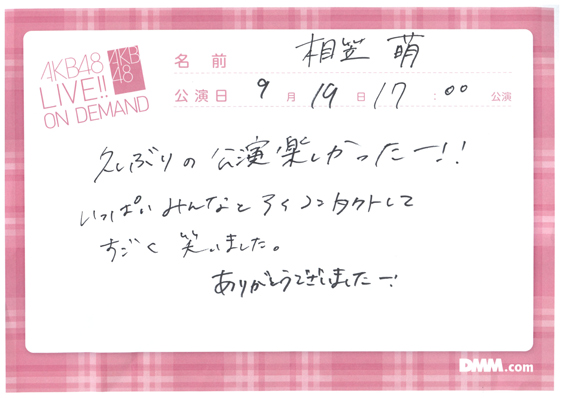 AKB48
LIVE!!
ON DEMAND
AKB
48
名前 相笠 萌
公演日 9月19日17:00公演
久しぶりの公演楽しかったー!!
いっぱいみんなとアイコンタクトして
すごく笑いました。
ありがとうございましたー!
DMM.com